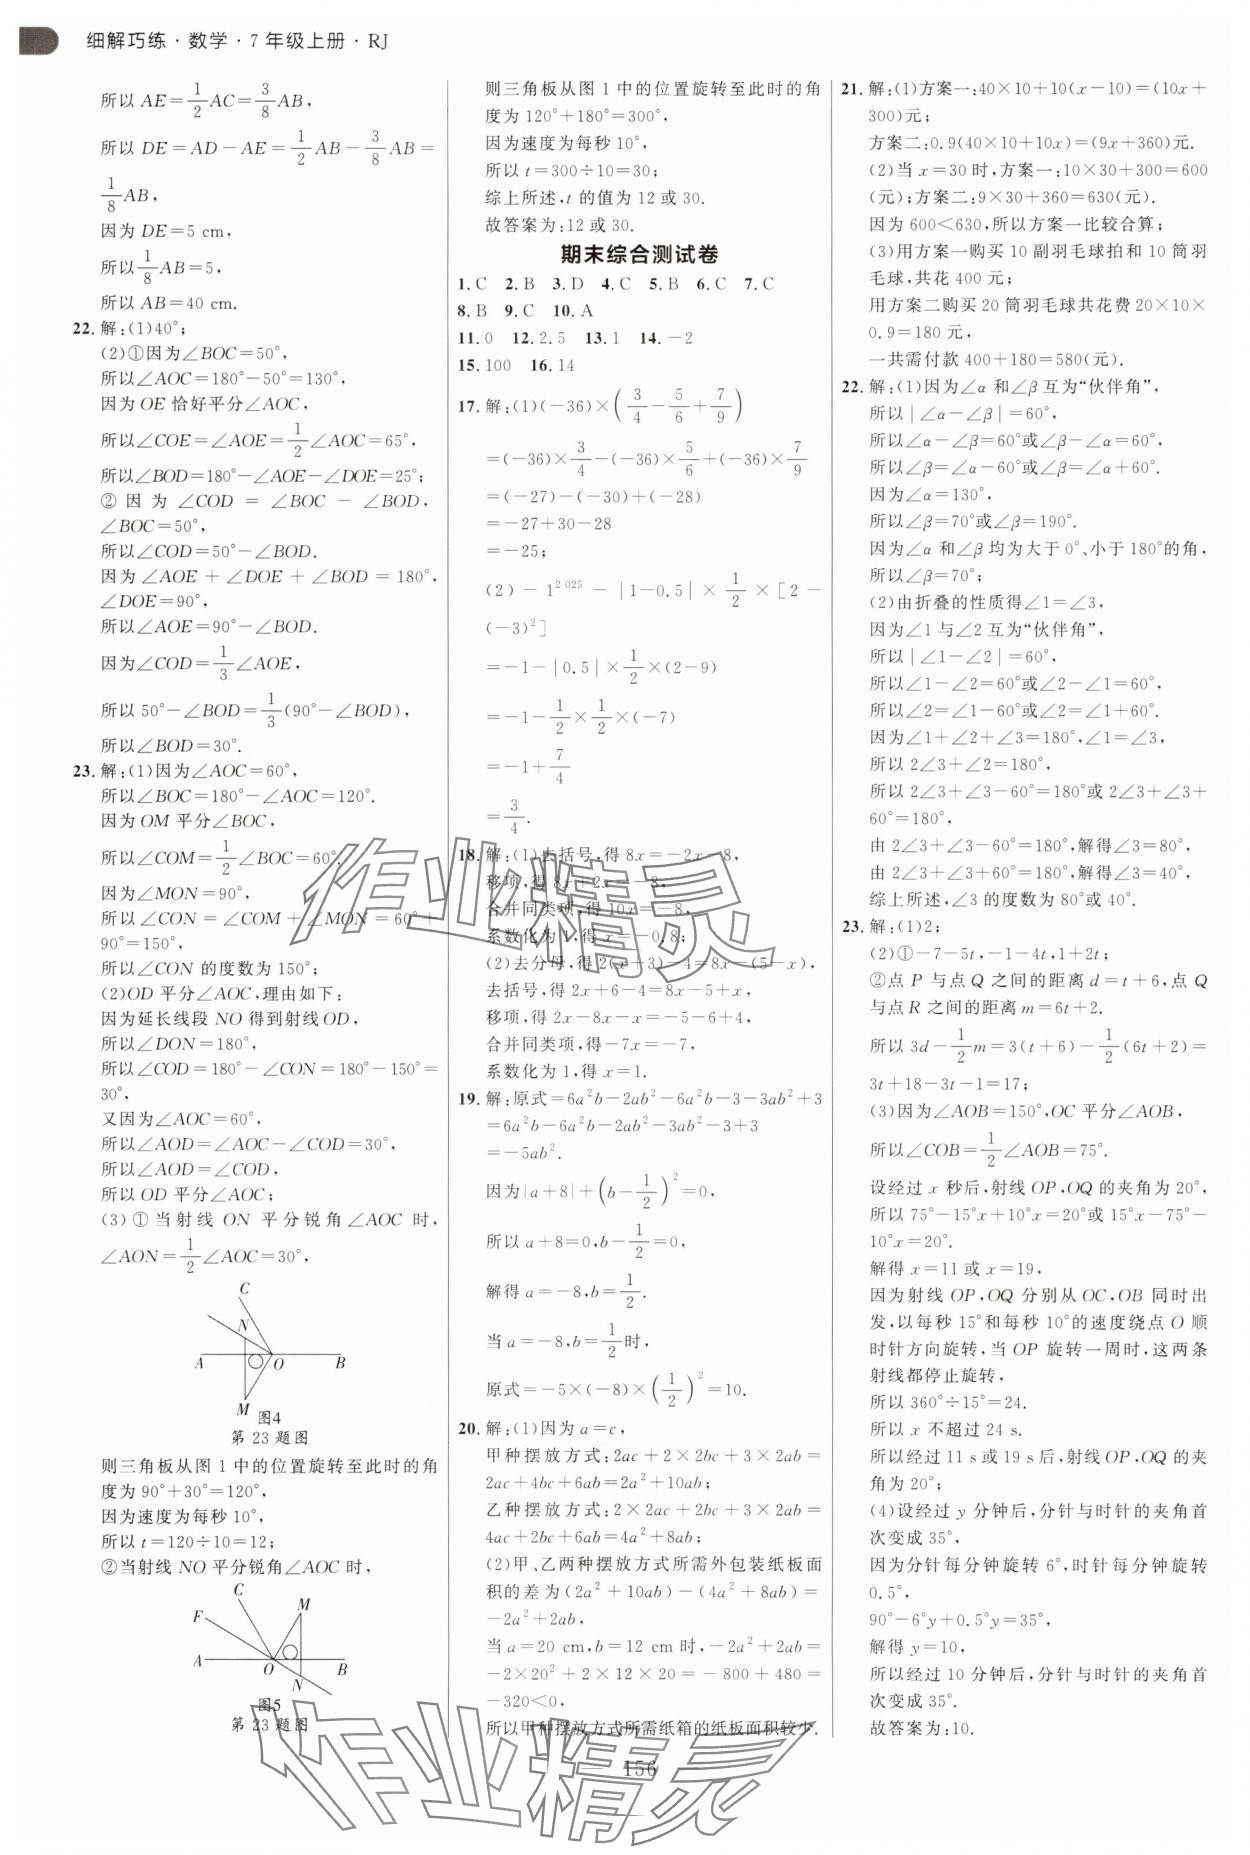 细解巧练·数学·7年级上册·RJ
所以 AE=1/2AC=3/8AB,
所以 DE=AD-AE=1/2AB-3/8AB=
1/8AB,
因为 DE=5 cm,
所以1/8AB=5,
所以 AB=40 cm.
22. 解:(1)40°;
(2)①因为∠BOC=50°,
所以∠AOC=180°-50°=130°,
因为 OE 恰好平分∠AOC,
所以∠COE=∠AOE=1/2∠AOC=65°,
所以∠BOD=180°-∠AOE-∠DOE=25°;
②因为∠COD=∠BOC-∠BOD,
∠BOC=50°,
所以∠COD=50°-∠BOD.
因为∠AOE+∠DOE+∠BOD=180°,
∠DOE=90°,
所以∠AOE=90°-∠BOD.
因为∠COD=1/3∠AOE,
所以 50°-∠BOD=1/3(90°-∠BOD),
所以∠BOD=30°.
23. 解:(1)因为∠AOC=60°,
所以∠BOC=180°-∠AOC=120°.
因为 OM 平分∠BOC,
所以∠COM=1/2∠BOC=60°.
因为∠MON=90°,
所以∠CON=∠COM+∠MON=60°+
90°=150°,
所以∠CON 的度数为 150°;
(2)OD 平分∠AOC,理由如下:
因为延长线段 NO 得到射线 OD,
所以∠DON=180°,
所以∠COD=180°-∠CON=180°-150°=
30°,
又因为∠AOC=60°,
所以∠AOD=∠AOC-∠COD=30°,
所以∠AOD=∠COD,
所以 OD 平分∠AOC;
(3)①当射线 ON 平分锐角∠AOC 时,
∠AON=1/2∠AOC=30°,
C
N
A O B
M
图4
第 23 题图
则三角板从图 1 中的位置旋转至此时的角
度为 90°+30°=120°,
因为速度为每秒 10°,
所以 t=120÷10=12;
②当射线 NO 平分锐角∠AOC 时,
C
F M
A O B
N
图5
第 23 题图
则三角板从图 1 中的位置旋转至此时的角
度为 120°+180°=300°,
因为速度为每秒 10°,
所以 t=300÷10=30;
综上所述,t 的值为 12 或 30.
故答案为:12 或 30.
期末综合测试卷
1. C 2. B 3. D 4. C 5. B 6. C 7. C
8. B 9. C 10. A
11. 0 12. 2.5 13. 1 14. -2
15. 100 16. 14
17. 解:(1)(-36)×(3/4-5/6+7/9)
=(-36)×3/4-(-36)×5/6+(-36)×7/9
=(-27)-(-30)+(-28)
=-27+30-28
=-25;
(2)-1^2 025-|1-0.5|×1/2×[2-
(-3)²]
=-1-|0.5|×1/2×(2-9)
=-1-1/2×1/2×(-7)
=-1+7/4
=3/4.
18. 解:(1)去括号,得 8x=-2x-8,
移项,得 8x+2x=-8,
合并同类项,得 10x=-8,
系数化为 1,得 x=-0.8;
(2)去分母,得 2(x+3)-4=8x-(5-x),
去括号,得 2x+6-4=8x-5+x,
移项,得 2x-8x-x=-5-6+4,
合并同类项,得-7x=-7,
系数化为 1,得 x=1.
19. 解:原式=6a²b-2ab²-6a²b-3-3ab²+3
=6a²b-6a²b-2ab²-3ab²-3+3
=-5ab².
因为|a+8|+(b-1/2)²=0,
所以 a+8=0,b-1/2=0,
解得 a=-8,b=1/2.
当 a=-8,b=1/2时,
原式=-5×(-8)×(1/2)²=10.
20. 解:(1)因为 a=c,
甲种摆放方式:2ac+2×2bc+3×2ab=
2ac+4bc+6ab=2a²+10ab;
乙种摆放方式:2×2ac+2bc+3×2ab=
4ac+2bc+6ab=4a²+8ab;
(2)甲、乙两种摆放方式所需外包装纸板面
积的差为(2a²+10ab)-(4a²+8ab)=
-2a²+2ab,
当 a=20 cm,b=12 cm 时,-2a²+2ab=
-2×20²+2×12×20=-800+480=
-320<0,
所以甲种摆放方式所需纸箱的纸板面积较少.
21. 解:(1)方案一:40×10+10(x-10)=(10x+
300)元;
方案二:0.9(40×10+10x)=(9x+360)元.
(2)当 x=30 时,方案一:10×30+300=600
(元);方案二:9×30+360=630(元).
因为 600<630,所以方案一比较合算;
(3)用方案一购买 10 副羽毛球拍和 10 筒羽
毛球,共花 400 元;
用方案二购买 20 筒羽毛球共花费 20×10×
0.9=180 元,
一共需付款 400+180=580(元).
22. 解:(1)因为∠α 和∠β 互为“伙伴角”,
所以|∠α-∠β|=60°,
所以∠α-∠β=60°或∠β-∠α=60°,
所以∠β=∠α-60°或∠β=∠α+60°.
因为∠α=130°,
所以∠β=70°或∠β=190°.
因为∠α 和∠β 均为大于 0°、小于 180°的角,
所以∠β=70°;
(2)由折叠的性质得∠1=∠3,
因为∠1 与∠2 互为“伙伴角”,
所以|∠1-∠2|=60°,
所以∠1-∠2=60°或∠2-∠1=60°,
所以∠2=∠1-60°或∠2=∠1+60°.
因为∠1+∠2+∠3=180°,∠1=∠3,
所以 2∠3+∠2=180°,
所以 2∠3+∠3-60°=180°或 2∠3+∠3+
60°=180°,
由 2∠3+∠3-60°=180°,解得∠3=80°,
由 2∠3+∠3+60°=180°,解得∠3=40°,
综上所述,∠3 的度数为 80°或 40°.
23. 解:(1)2;
(2)①-7-5t,-1-4t,1+2t;
②点 P 与点 Q 之间的距离 d=t+6,点 Q
与点 R 之间的距离 m=6t+2.
所以 3d-1/2m=3(t+6)-1/2(6t+2)=
3t+18-3t-1=17;
(3)因为∠AOB=150°,OC 平分∠AOB,
所以∠COB=1/2∠AOB=75°.
设经过 x 秒后,射线 OP,OQ 的夹角为 20°,
所以 75°-15°x+10°x=20°或 15°x-75°-
10°x=20°.
解得 x=11 或 x=19,
因为射线 OP,OQ 分别从 OC,OB 同时出
发,以每秒 15°和每秒 10°的速度绕点 O 顺
时针方向旋转,当 OP 旋转一周时,这两条
射线都停止旋转,
所以 360°÷15°=24.
所以 x 不超过 24 s.
所以经过 11 s 或 19 s 后,射线 OP,OQ 的夹
角为 20°;
(4)设经过 y 分钟后,分针与时针的夹角首
次变成 35°,
因为分针每分钟旋转 6°,时针每分钟旋转
0.5°,
90°-6°y+0.5°y=35°,
解得 y=10,
所以经过 10 分钟后,分针与时针的夹角首
次变成 35°.
故答案为:10.
156
作业精灵
作业精灵